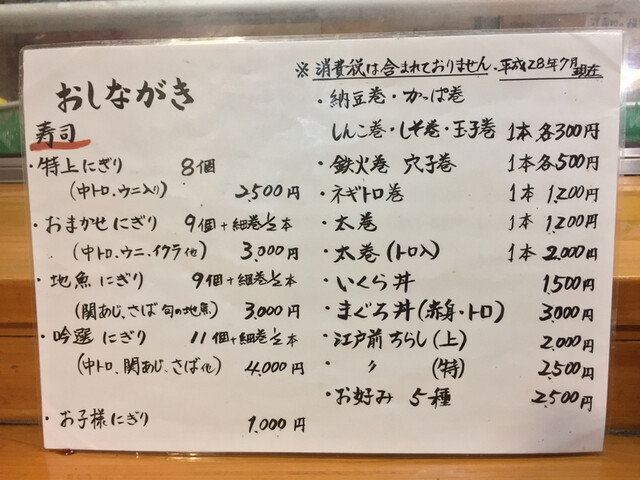 おしながき
寿司
・特上にぎり 8個
(中トロ、ウニ入り) 2,500円
・おまかせにぎり 9個+細巻1/2本
(中トロ、ウニ、イクラ他) 3,000円
・地魚にぎり 9個+細巻1/2本
(関あじ、さば 旬の地魚) 3,000円
・吟選にぎり 11個+細巻1/2本
(中トロ、関あじ、さば他) 4,000円
・お子様にぎり 1,000円
※消費税は含まれておりません、平成28年7月現在
・納豆巻・かっぱ巻
しんこ巻・しそ巻・玉子巻 1本各300円
・鉄火巻 穴子巻 1本各500円
・ネギトロ巻 1本 1,200円
・太巻 1本 1,200円
・太巻(トロ入) 1本 2,000円
・いくら丼 1,500円
・まぐろ丼(赤身・トロ) 3,000円
・江戸前ちらし(上) 2,000円
・〃 (特) 2,500円
・お好み 5種 2,500円